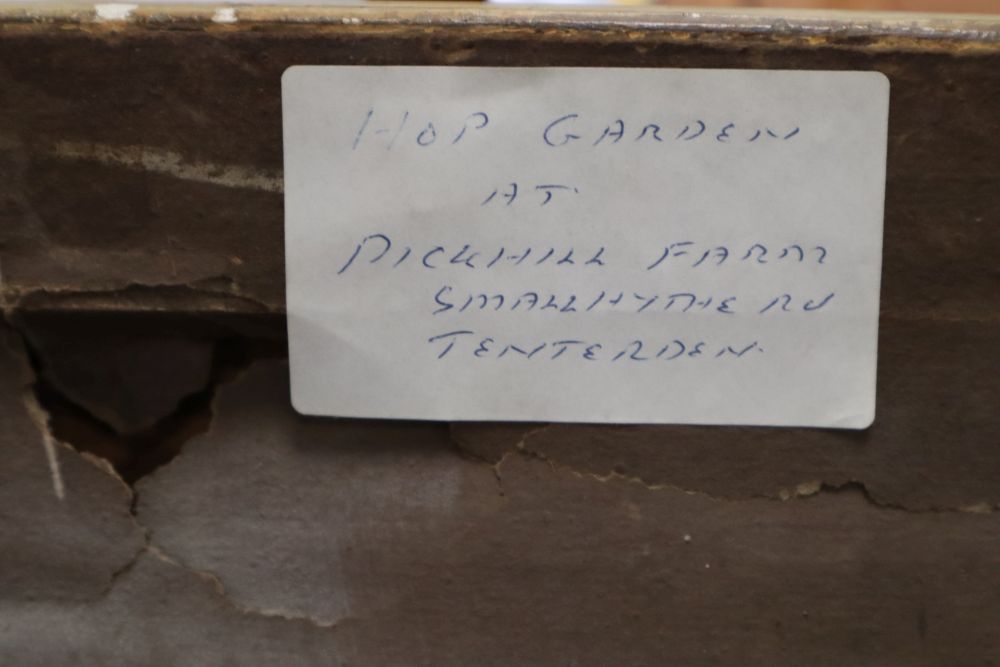 HOP GARDEN
AT
PICKHILL FARM
SMALLHYTHE RD
TENTERDEN.